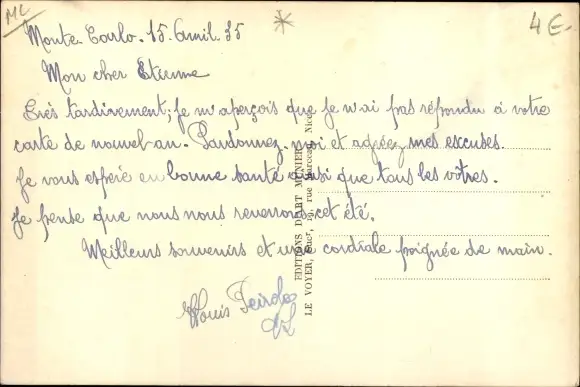 MC
4€-
Monte-Carlo. 15. Avril. 35
Mon cher Etienne
Très tardivement, je m'aperçois que je n'ai pas répondu à votre
carte de nouvel-an. Pardonnez-moi et agréez mes excuses.
Je vous espère en bonne santé ainsi que tous les vôtres.
Je pense que nous nous reverrons cet été.
Meilleurs souvenirs et une cordiale poignée de main.
Louis
EDITIONS D'ART MUNIER
LE VOYER, rue Marceau, Nice